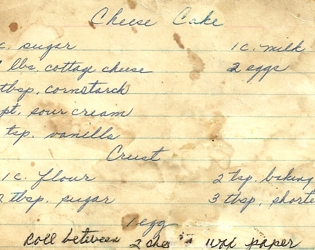 Cheese Cake
c. sugar 1 c. milk
lbs. cottage cheese 2 eggs
tbsp. cornstarch
pt. sour cream
tsp. vanilla
Crust
1 c. flour 2 tsp. baking
tbsp. sugar 3 tbsp. shorte
1 egg
Roll between 2 wax paper